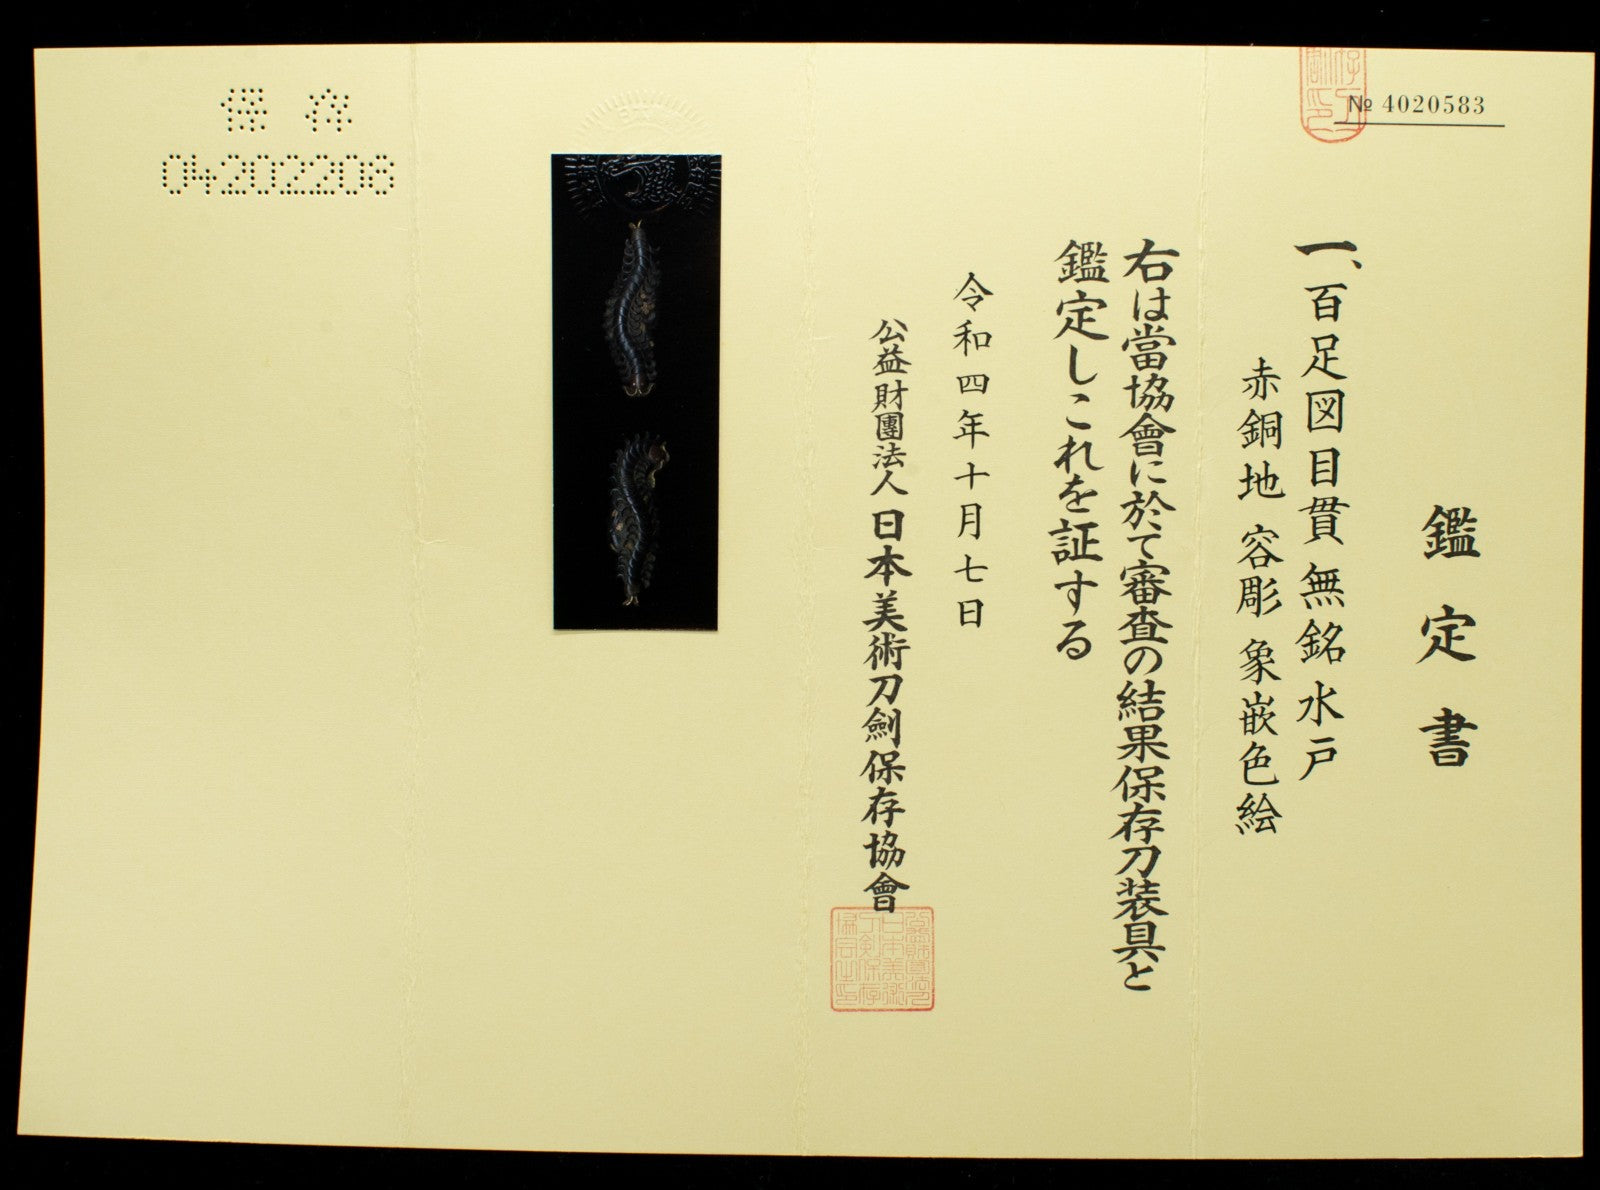 № 4020583
鑑定書
一、百足図目貫 無銘 水戸
赤銅地 容彫 象嵌色絵
右は當協會に於て審査の結果保存刀装具と
鑑定しこれを証する
令和四年十月七日
公益財團法人 日本美術刀劍保存協會
保存
04202208